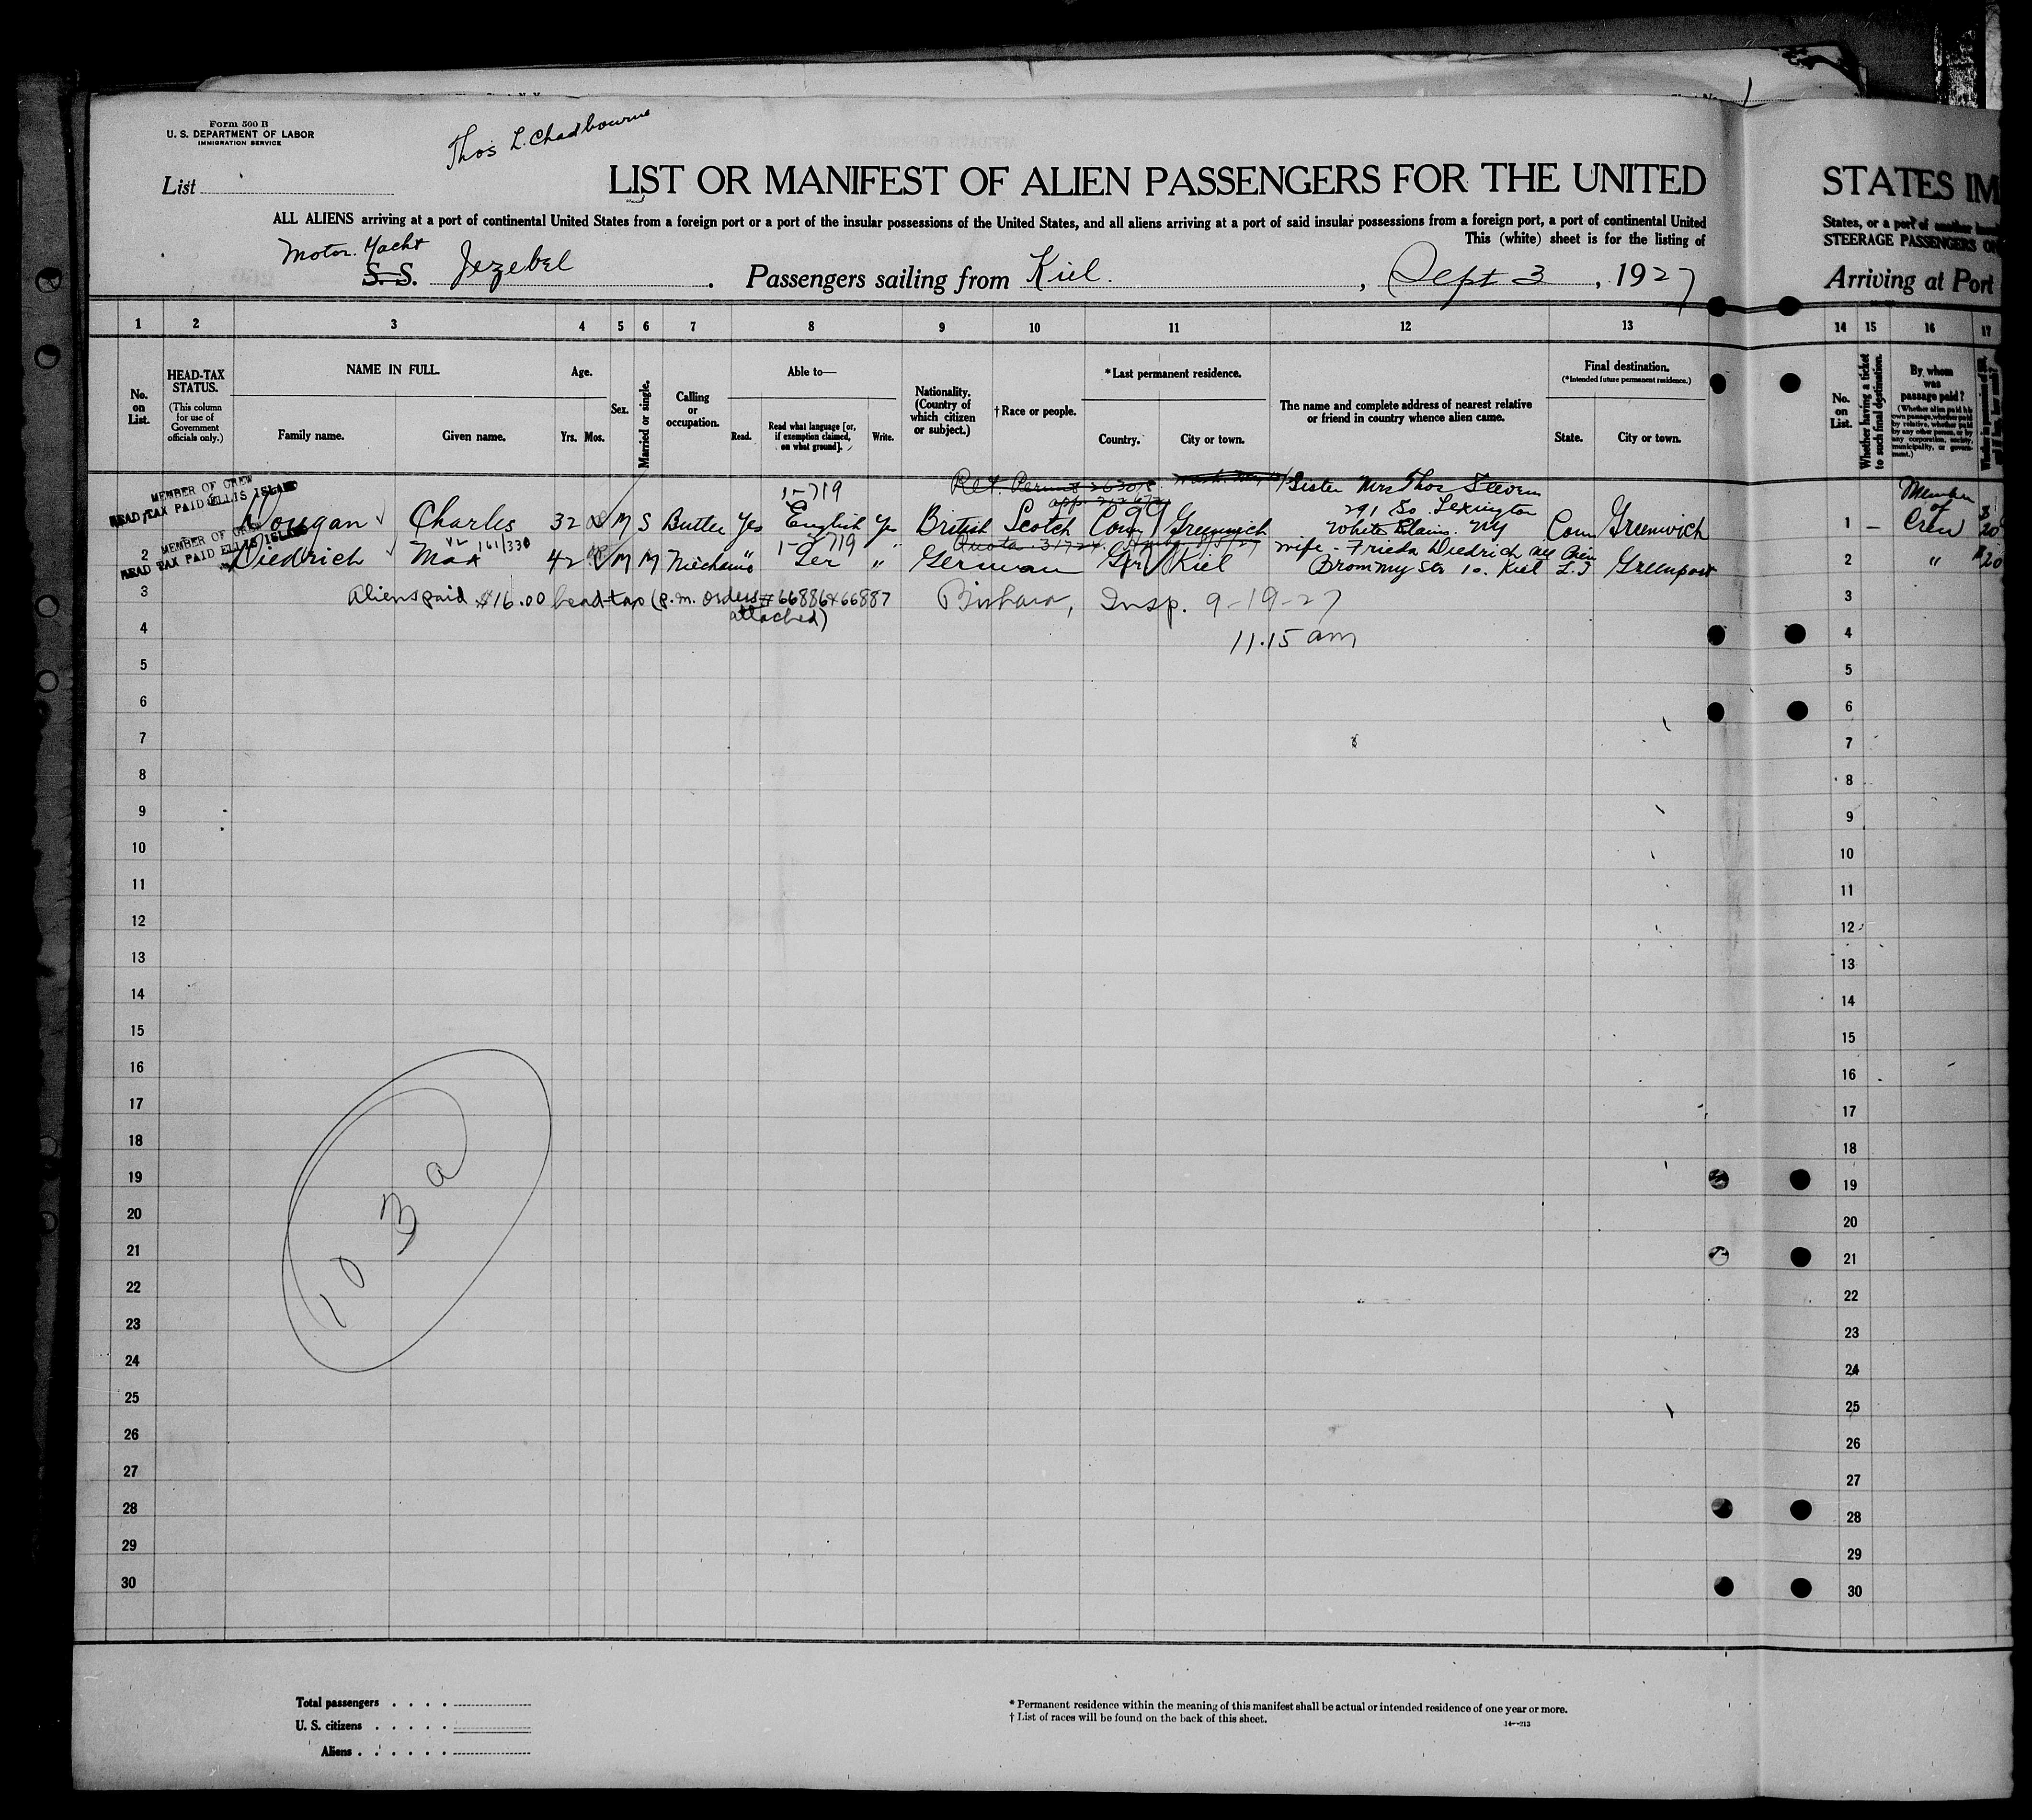 Form 500 B
U. S. DEPARTMENT OF LABOR
IMMIGRATION SERVICE
Thos L. Chadbourne
List
LIST OR MANIFEST OF ALIEN PASSENGERS FOR THE UNITED
STATES IM
ALL ALIENS arriving at a port of continental United States from a foreign port or a port of the insular possessions of the United States, and all aliens arriving at a port of said insular possessions from a foreign port, a port of continental United
States, or a port of another
This (white) sheet is for the listing of
STEERAGE PASSENGERS
Motor Yacht
S. S. Jezebel . Passengers sailing from Kiel. , Sept 3 , 1927
Arriving at Port
1 2 3 4 5 6 7 8 9 10 11 12 13
14 15 16 17
No. on List.
HEAD-TAX STATUS.
(This column for use of Government officials only.)
NAME IN FULL.
Family name. Given name.
Age.
Yrs. Mos.
Sex.
Married or single.
Calling or occupation.
Able to—
Read. Read what language [or, if exemption claimed, on what ground]. Write.
Nationality. (Country of which citizen or subject.)
†Race or people.
*Last permanent residence.
Country. City or town.
The name and complete address of nearest relative or friend in country whence alien came.
Final destination.
(*Intended future permanent residence.)
State. City or town.
No. on List.
Whether having a ticket to such final destination.
By whom was passage paid?
(Whether alien paid his own passage, whether paid by relative, whether paid by any other person, or by any corporation, society, municipality, or government.)
MEMBER OF CREW
HEAD TAX PAID ELLIS ISLAND
1-719
Ret. Permit
Sister Mrs Thos Steven
291 So. Lexington
White Plains. NY
Dougan Charles 32 M S Butler Yes English Yes British Scotch Conn Greenwich Conn Greenwich
1 — Member of Crew $20
MEMBER OF CREW
HEAD TAX PAID ELLIS ISLAND
161/330
1-719
Quota 31724
2 Diedrich Max 42 M M Mechanic " Ger " German Ger Kiel wife - Frieda Diedrich
Brommy Str 10. Kiel L.I Greenport
2 " $20
3 Aliens paid $16.00 head tax (p.m. orders # 66886 & 66887
attached)
Insp. 9-19-27
11.15 am
3
4 4
5 5
6 6
7 7
8 8
9 9
10 10
11 11
12 12
13 13
14 14
15 15
16 16
17 17
18 18
19 19
20 20
21 21
22 22
23 23
24 24
25 25
26 26
27 27
28 28
29 29
30 30
103a
Total passengers . . . .
U. S. citizens . . . . .
Aliens . . . . . .
* Permanent residence within the meaning of this manifest shall be actual or intended residence of one year or more.
† List of races will be found on the back of this sheet.
14—213